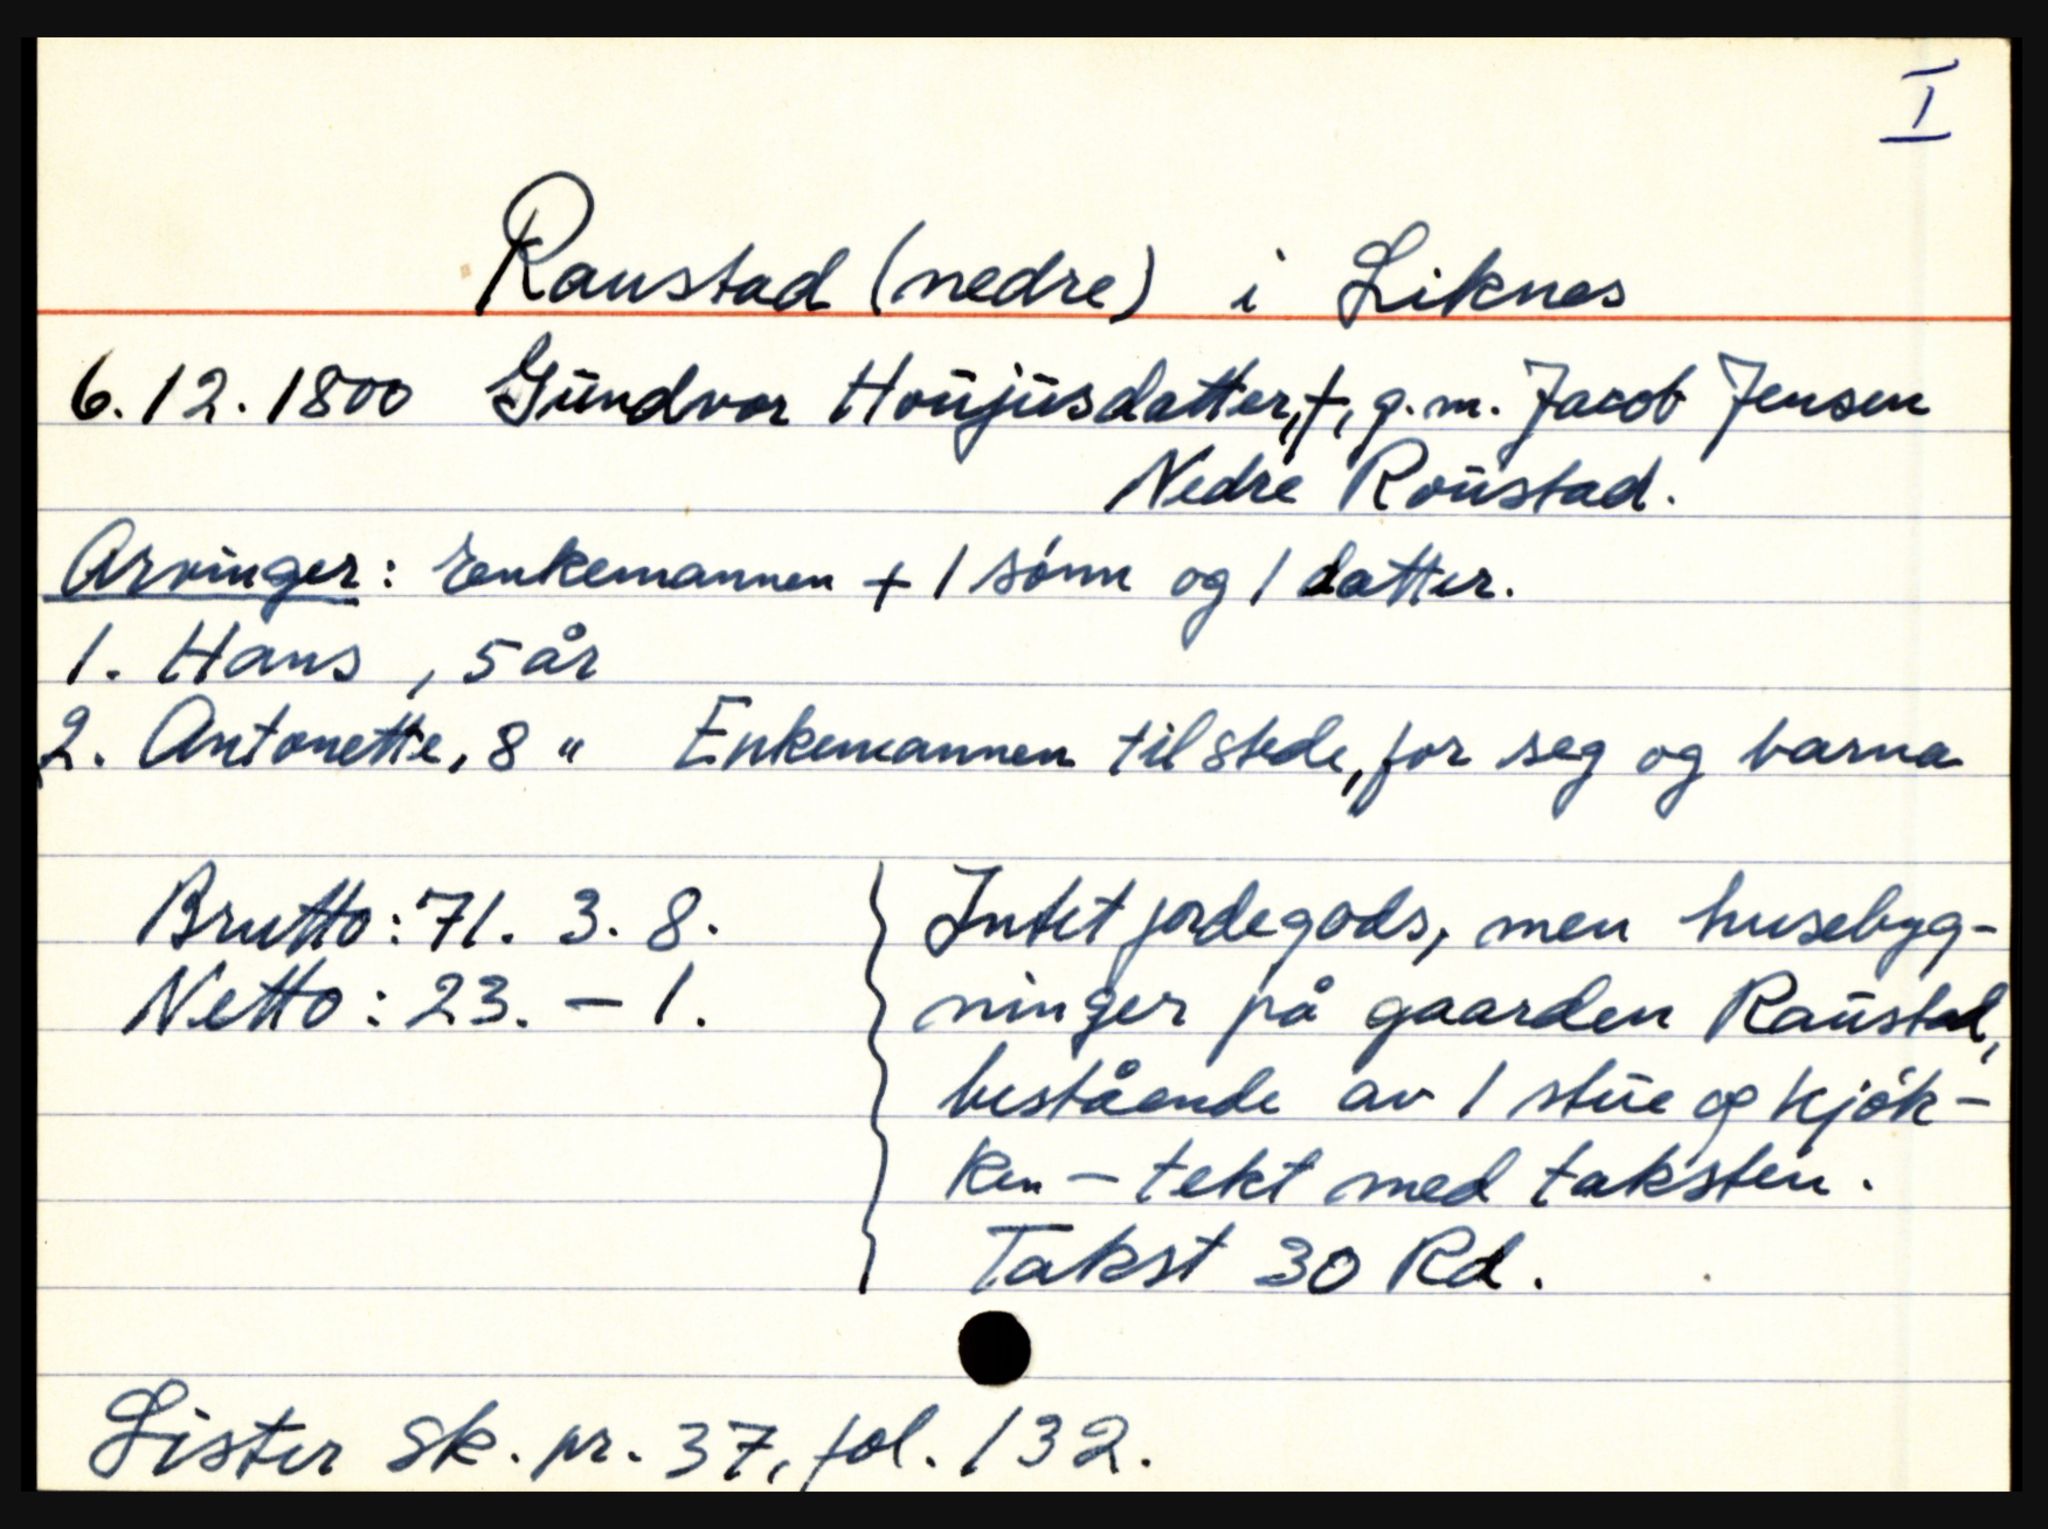 I
Raustad (nedre) i Liknes
6.12.1800 Gundvor Houjusdatter, †, g.m. Jacob Jensen
Nedre Roustad.
Arvinger: Enkemannen + 1 sønn og 1 datter.
1. Hans, 5 år
2. Antonette, 8 " Enkemannen tilstede, for seg og barna
Brutto: 71. 3. 8.
Netto: 23. – 1.
Intet jordegods, men husebyg-
ninger på gaarden Raustad,
bestående av 1 stue og kjøk-
ken – tekt med taksten.
Takst 30 Rd.
Lister sk. pr. 37, fol. 132.